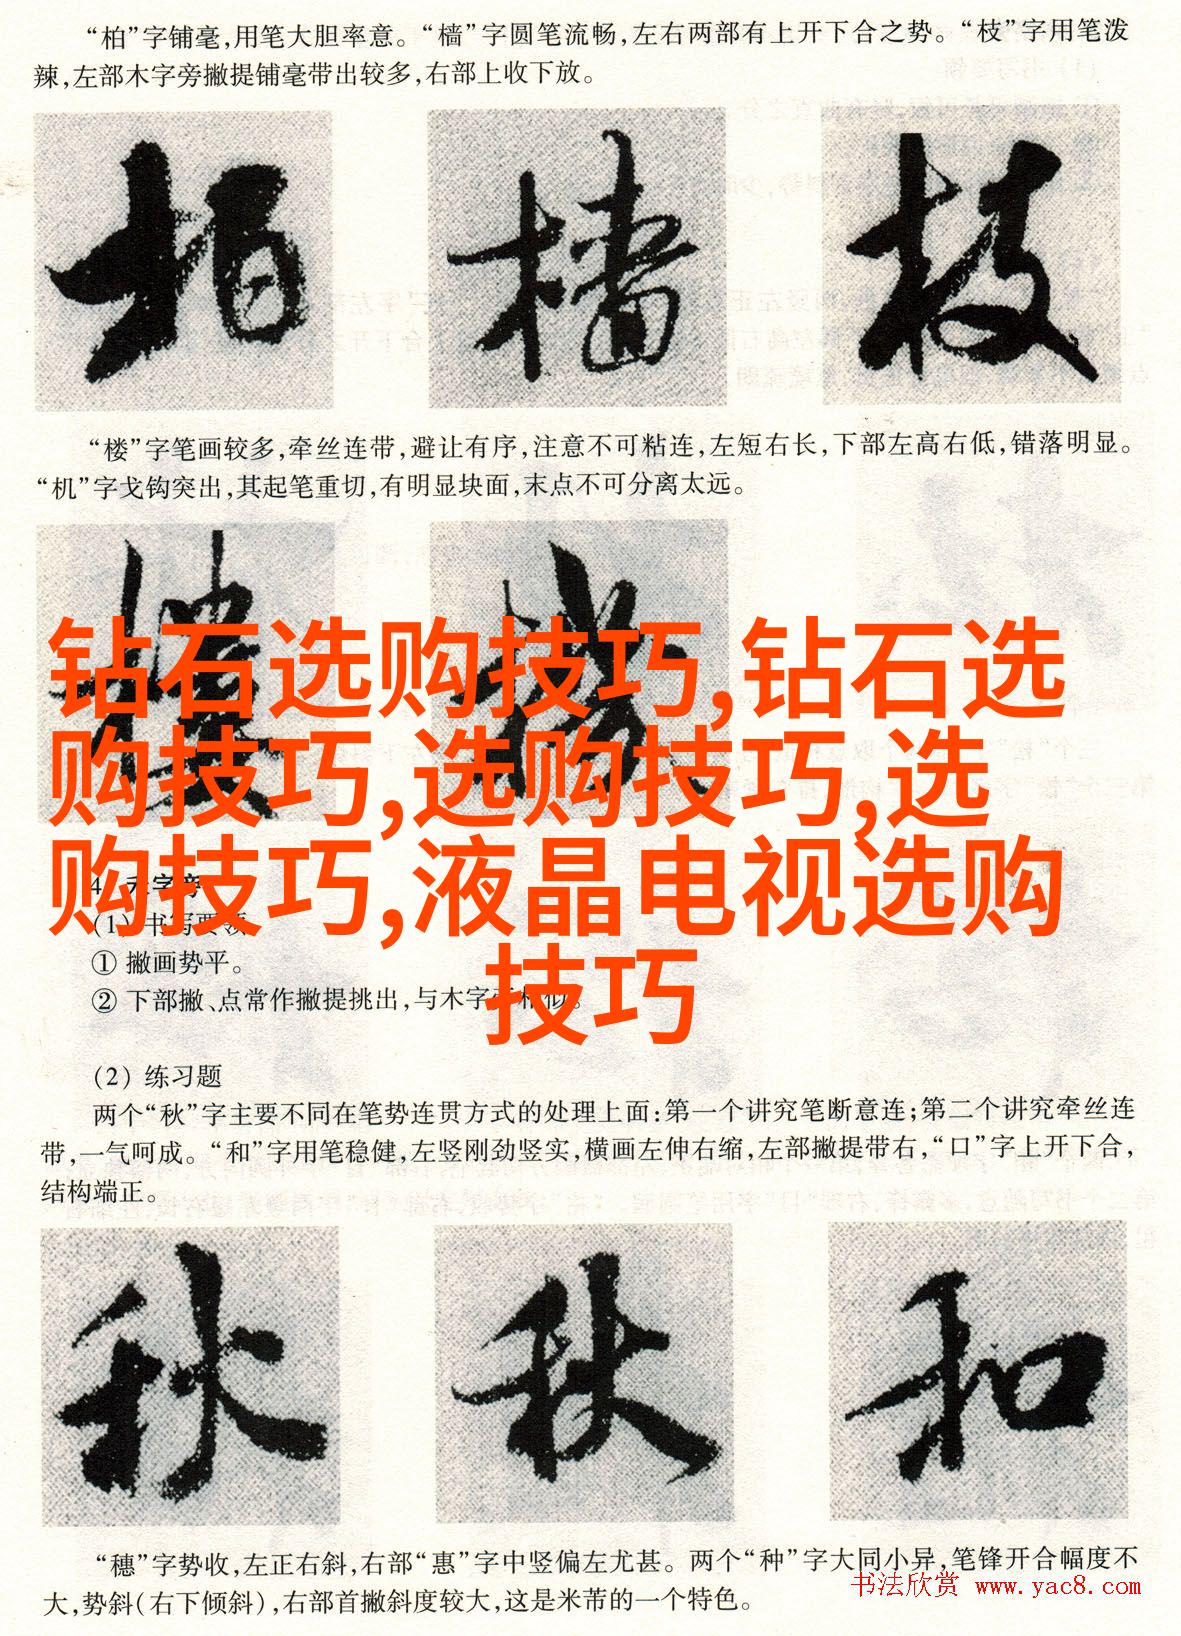 “柏”字铺毫,用笔大胆率意。“樯”字圆笔流畅,左右两部有上开下合之势。“枝”字用笔泼
辣,左部木字旁撇提铺毫带出较多,右部上收下放。
柏 樯 枝
“楼”字笔画较多,牵丝连带,避让有序,注意不可粘连,左短右长,下部左高右低,错落明显。
“机”字戈钩突出,其起笔重切,有明显块面,末点不可分离太远。
楼
钻石选购技巧,钻石选
购技巧,选购技巧,选
购技巧,液晶电视选购
技巧
4. 禾字旁
(1) 书写要领
① 撇画势平。
② 下部撇、点常作撇提挑出,与木字旁相似。
(2) 练习题
两个“秋”字主要不同在笔势连贯方式的处理上面:第一个讲究笔断意连;第二个讲究牵丝连
带,一气呵成。“和”字用笔稳健,左竖刚劲竖实,横画左伸右缩,左部撇提带右,“口”字上开下合,
结构端正。
秋 秋 和
“穗”字势收,左正右斜,右部“惠”字中竖偏左尤甚。两个“种”字大同小异,笔锋开合幅度不
大,势斜(右下倾斜),右部首撇斜度较大,这是米芾的一个特色。
书法欣赏 www.yac8.com